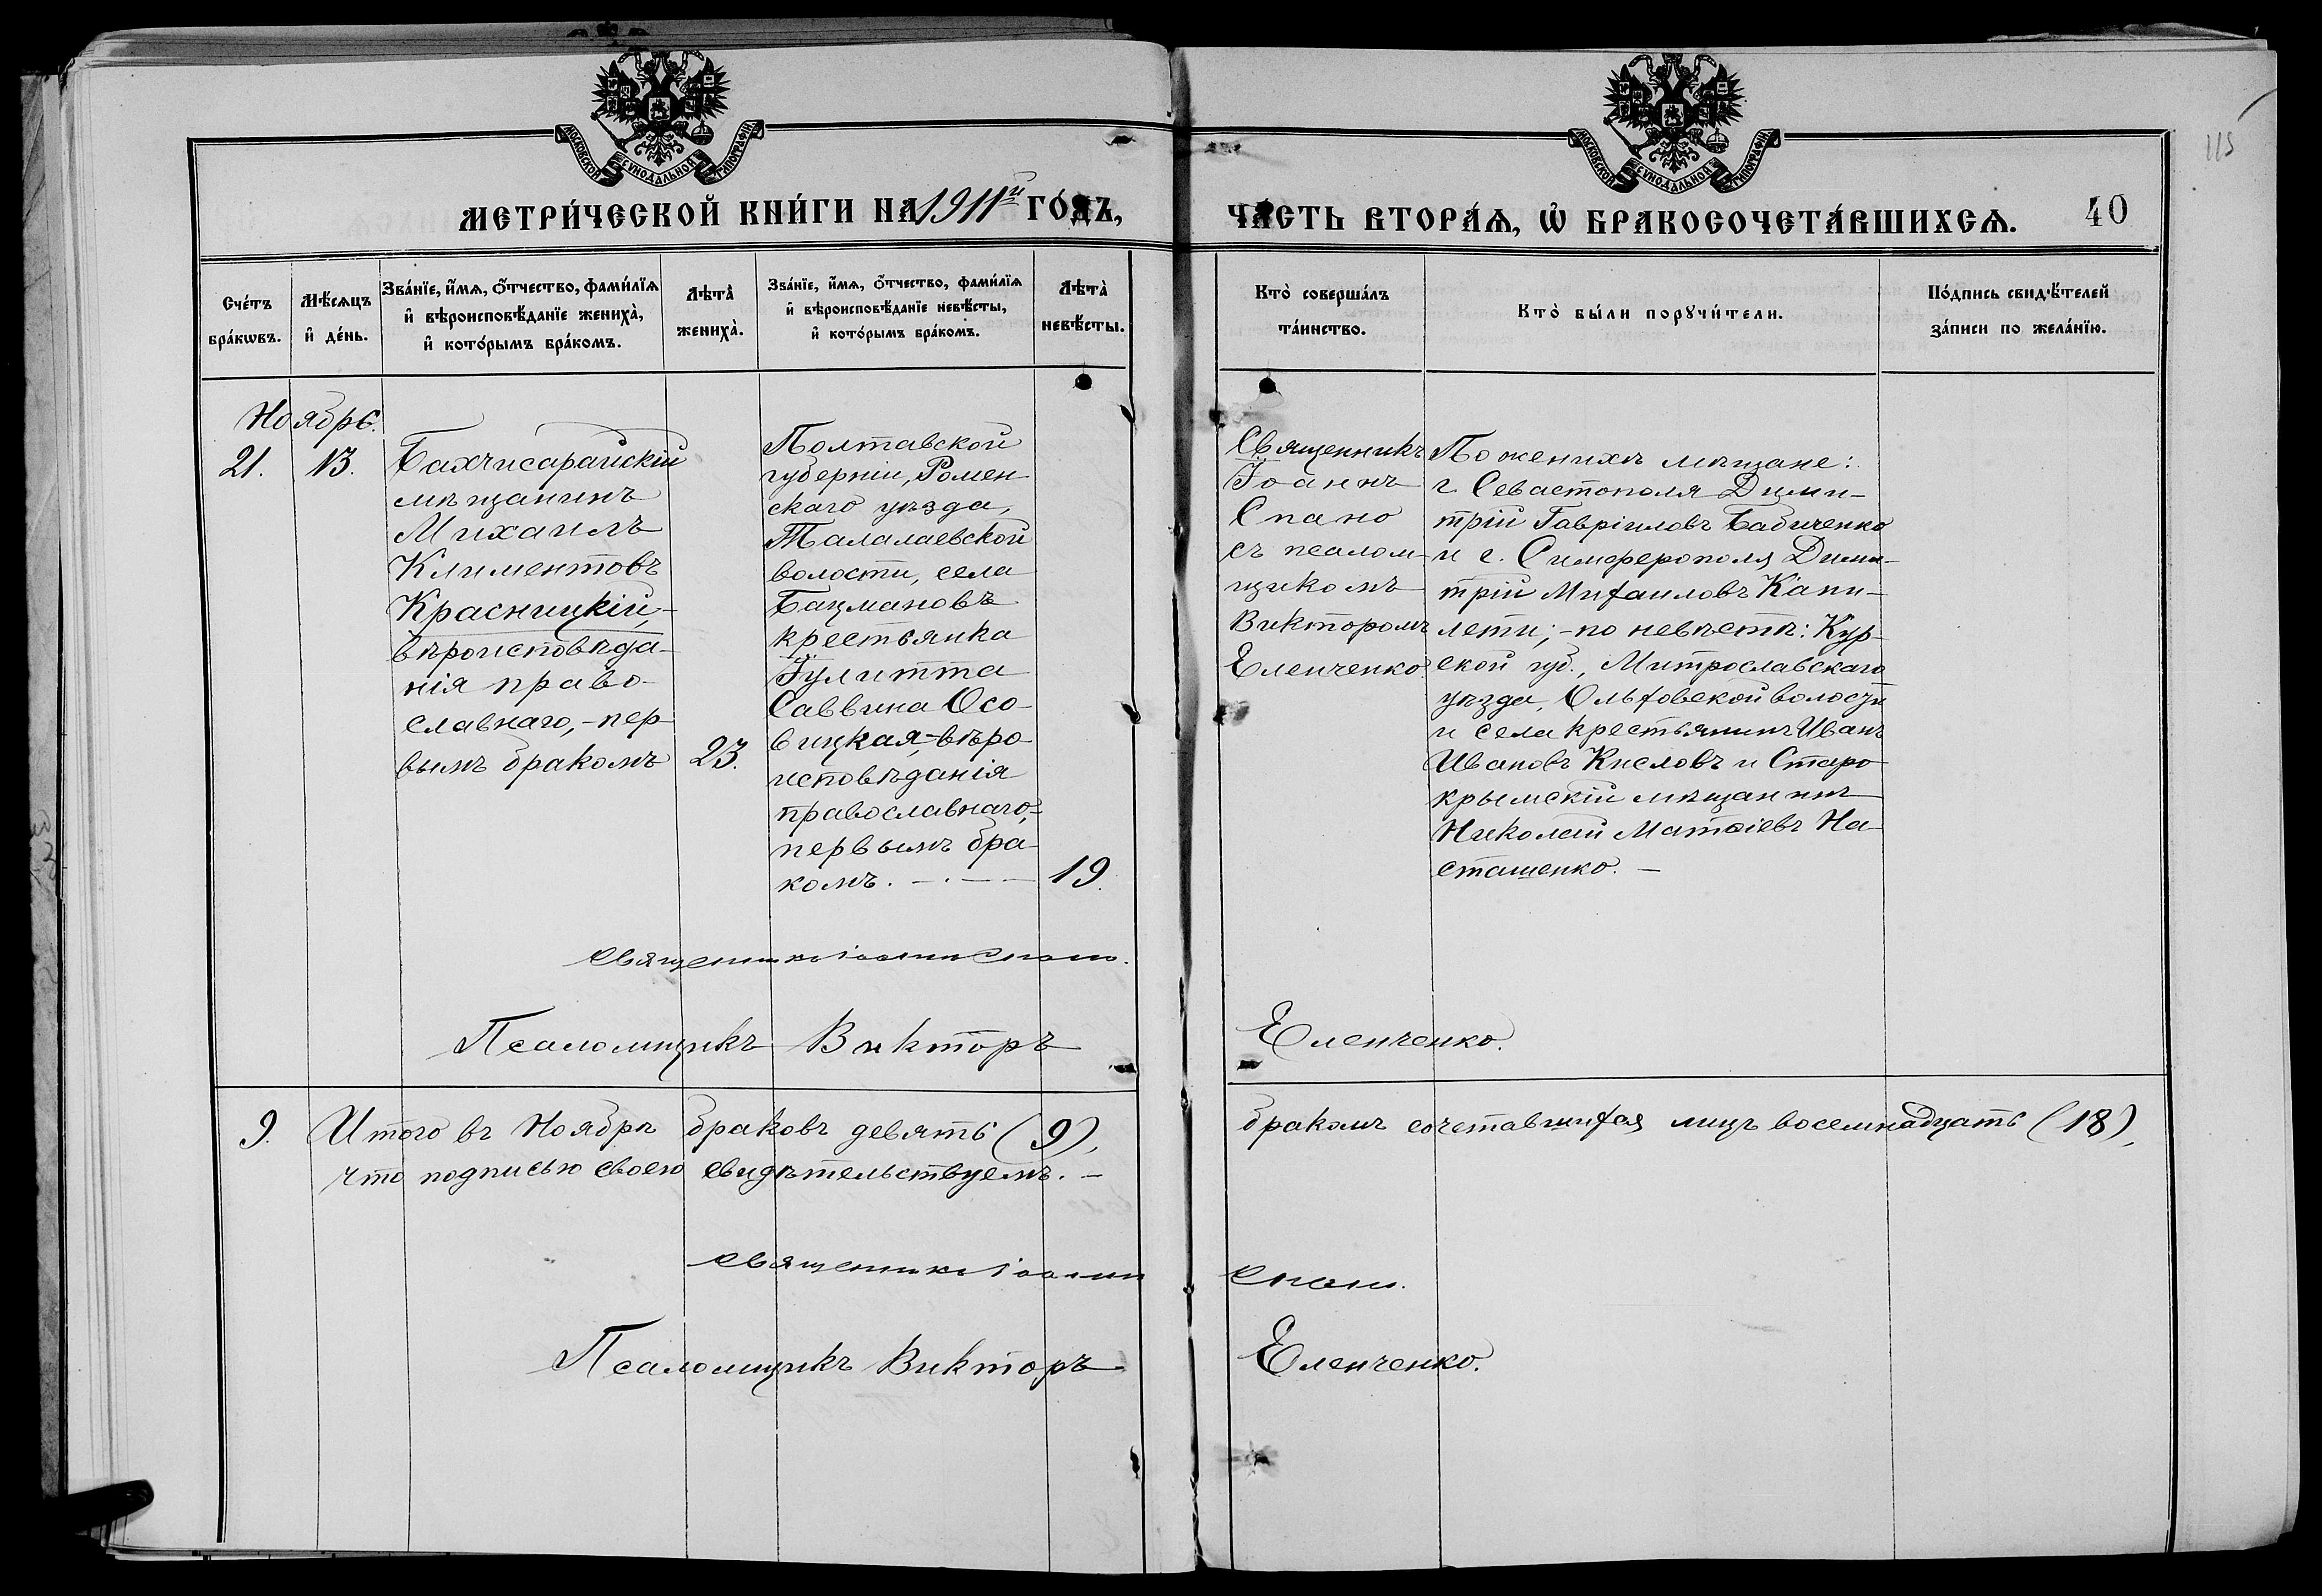 МОСКОВСКОЙ СѴНОДАЛЬНОЙ ТИПОГРАФІИ
МОСКОВСКОЙ СѴНОДАЛЬНОЙ ТИПОГРАФІИ
115
МЕТРИ́ЧЕСКОЙ КНИ́ГИ НА 1911й ГО́ДЪ,
ЧА́СТЬ ВТОРА́Ѧ, Ѡ҆ БРАКОСОЧЕТА́ВШИХСѦ. 40
Сче́тъ
бра́кѡвъ.
Мѣ́сѧцъ
и҆ де́нь.
Зва́нїе, и҆́мѧ, ѻ҆́тчество, фами́лїѧ
и҆ вѣроисповѣ́данїе жениха̀,
и҆ кото́рымъ бра́комъ.
Лѣта̀
жениха̀.
Зва́нїе, и҆́мѧ, ѻ҆́тчество, фами́лїѧ
и҆ вѣроисповѣ́данїе невѣ́сты,
и҆ кото́рымъ бра́комъ.
Лѣта̀
невѣ́сты.
Кто̀ соверша́лъ
та́инство.
Кто̀ бы́ли порꙋчи́тели.
По́дпись свидѣ́телей
за́писи по жела́нїю.
Ноябрь.
21.
13.
Бахчисарайскій
мѣщанинъ
Михаилъ
Климентовъ
Красницкій,-
вѣроисповѣда-
нія право-
славнаго,-пер-
вымъ бракомъ
23.
Полтавской
губерніи, Ромен-
скаго уѣзда,
Талалаевской
волости, села
Бацмановъ
крестьянка
Іулитта
Саввина Осо-
вицкая,-вѣро-
исповѣданія
православнаго,-
первымъ бра-
комъ. —.—
19.
Священникъ
Іоаннъ
Спано
съ псалом-
щикомъ
Викторомъ
Еленченко
По женихѣ мѣщане:
г. Севастополя Дими-
трій Гавріиловъ Бабиченко
и г. Симферополя Дими-
трій Михаиловъ Капи-
лети;-по невѣстѣ: Кур-
ской губ., Митрославскаго
уѣзда, Ольховской волости
и села крестьянинъ Иванъ
Ивановъ Кисловъ и Старо-
крымскій мѣщанинъ
Николай Матѳіевъ На-
сташенко. —
Священникъ Іоаннъ Спано.
Псаломщикъ Викторъ Еленченко.
9. Итого въ Ноябрѣ браковъ девять (9), бракомъ сочетавшихся лицъ восемнадцать (18),
что подписью своею свидѣтельствуемъ. —
Священникъ Іоаннъ Спано.
Псаломщикъ Викторъ Еленченко.